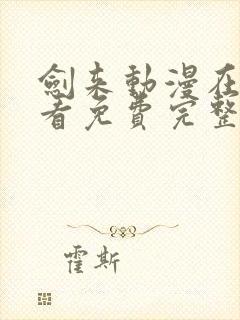 劍来動漫在
看免費完整
霍斯